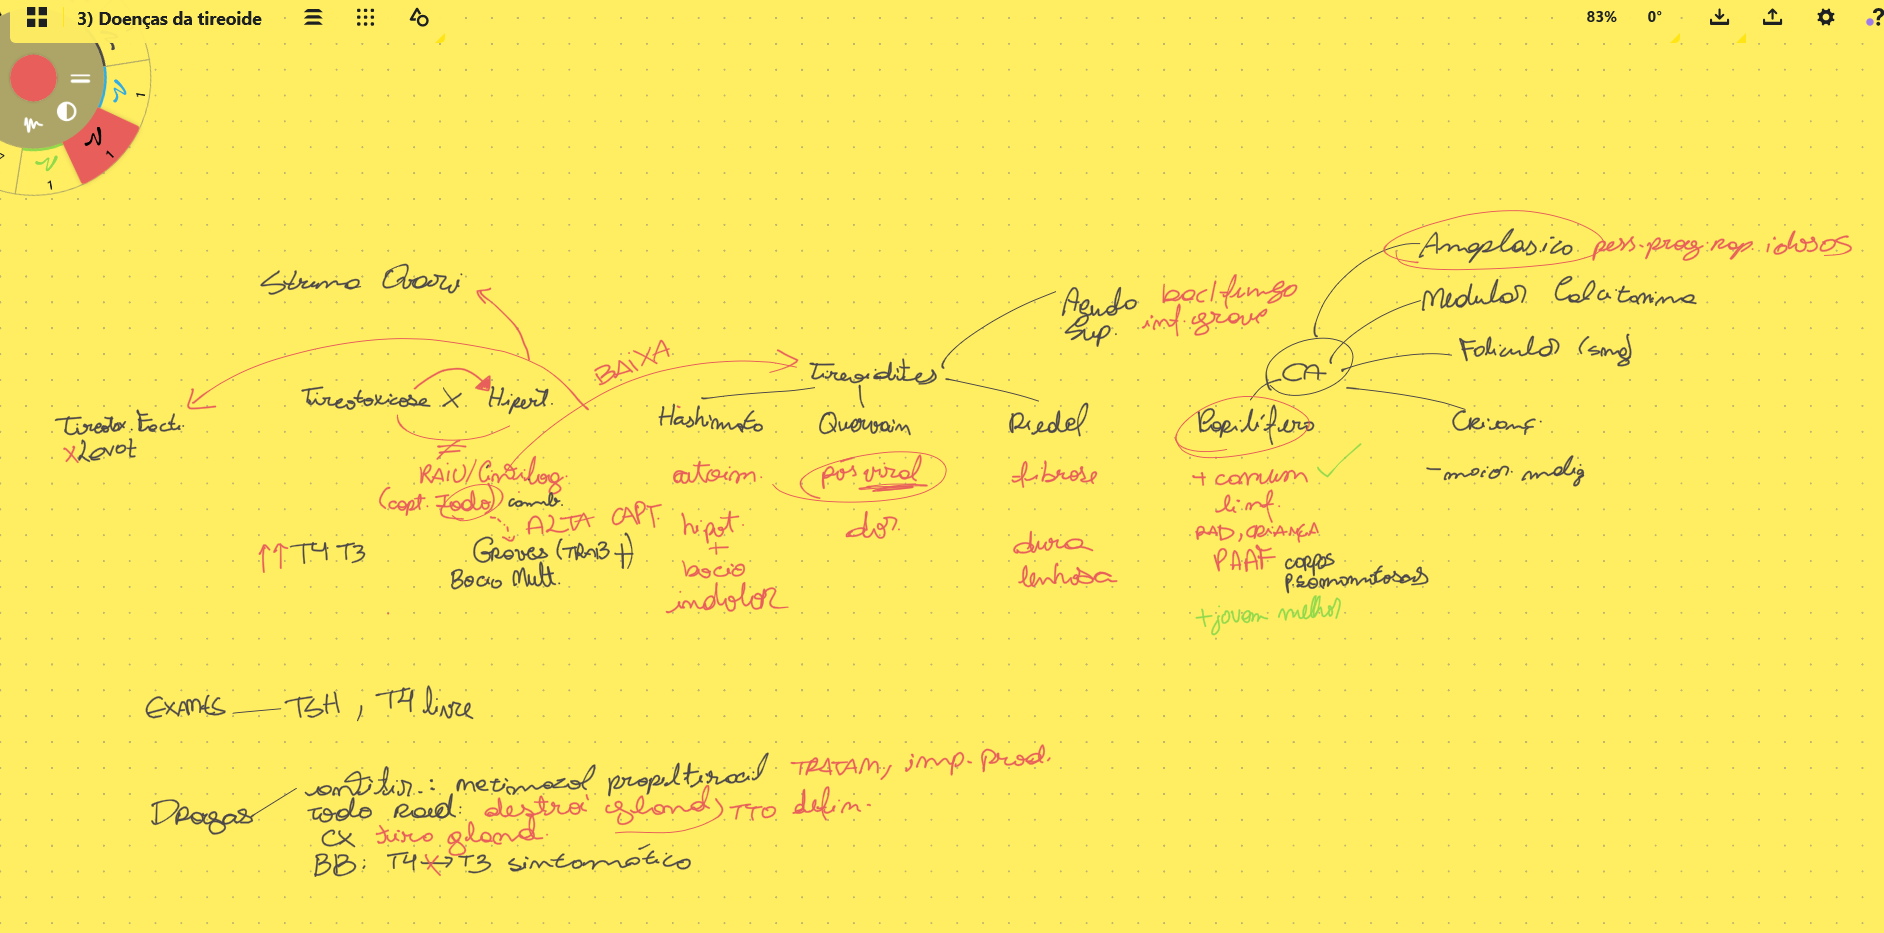 3) Doenças da tireoide
83%
0°
1
1
1
Struma Ovari
Tireotoxicose X Hipert.
Tireotox. Facti.
X Levot
≠
RAIU/Cintilog.
(capt. Iodo) comb.
ALTA CAPT.
↑↑ T4 T3
Graves (TRAB +)
Bocio Mult.
BAIXA
Tireoidites
Agudo
Sup.
bac/fungo
inf. grave
Hashimoto
autoim.
hipot.
+
bocio
indolor
Quervain
pós viral
dor.
Riedel
fibrose
dura
lenhosa
CA
Anaplasico pess. prog. rap. idosos
Medular Calcitonina
Folicular (smg)
Crianç.
- maior malig
Papilífero
+ comum ✓
linf.
RAD, CRIANÇA
PAAF corpos
psamomatosos
+ jovem melhor
EXAMES — TSH, T4 livre
Drogas
antitir.: metimazol propiltiracil TRATAM, imp. prod.
Iodo Rad: destroi gland) TTO defin.
CX tira gland.
BB: T4 X→ T3 sintomático